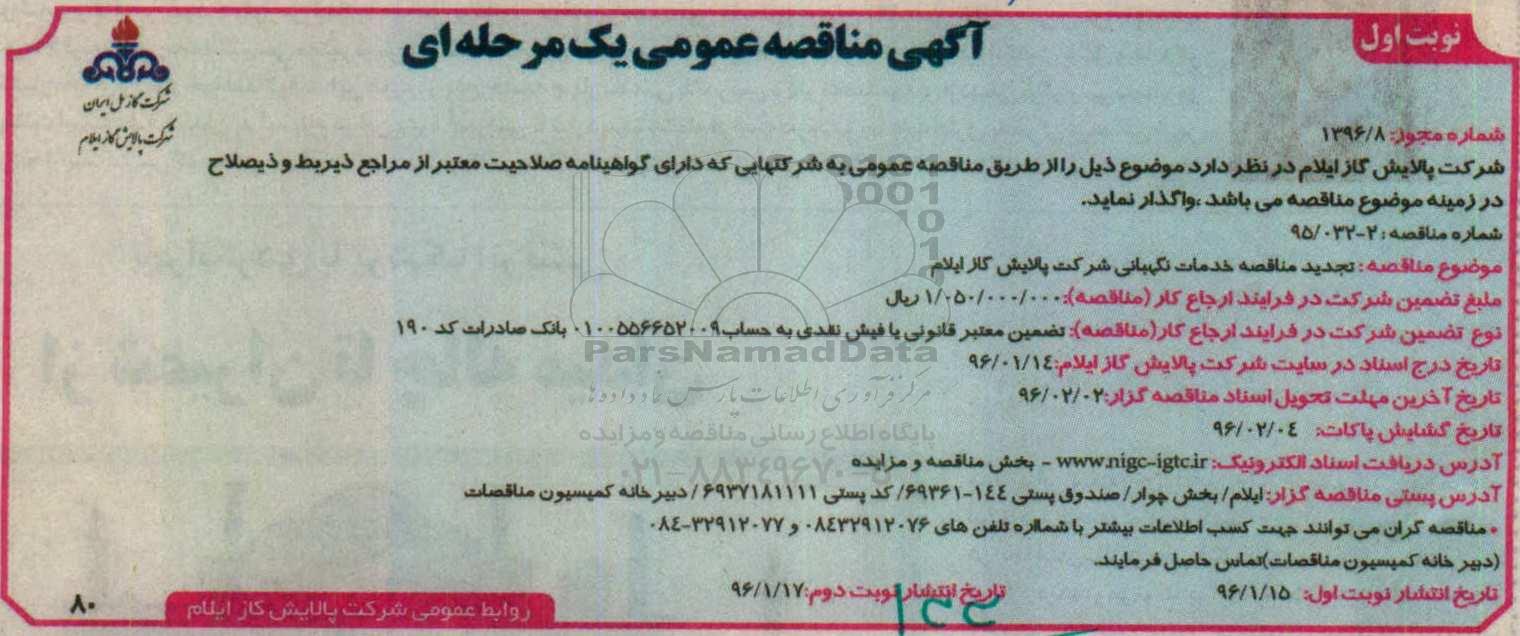 نوبت اول
آگهی مناقصه عمومی یک مرحله ای
شرکت گاز ملی ایران
شرکت پالایش گاز ایلام
شماره مجوز: ۱۳۹۶/۸
شرکت پالایش گاز ایلام در نظر دارد موضوع ذیل را از طریق مناقصه عمومی به شرکتهایی که دارای گواهینامه صلاحیت معتبر از مراجع ذیربط و ذیصلاح
در زمینه موضوع مناقصه می باشد ،واگذار نماید.
شماره مناقصه : ۲-۹۵/۰۳۲
موضوع مناقصه : تجدید مناقصه خدمات نگهبانی شرکت پالایش گاز ایلام
مبلغ تضمین شرکت در فرایند ارجاع کار (مناقصه): ۱/۰۵۰/۰۰۰/۰۰۰ ریال
نوع تضمین شرکت در فرایند ارجاع کار(مناقصه): تضمین معتبر قانونی یا فیش نقدی به حساب ۰۱۰۰۵۵۶۶۵۲۰۰۹ بانک صادرات کد ۱۹۰
تاریخ درج اسناد در سایت شرکت پالایش گاز ایلام: ۹۶/۰۱/۱٤
تاریخ آخرین مهلت تحویل اسناد مناقصه گزار: ۹۶/۰۲/۰۲
تاریخ گشایش پاکات: ۹۶/۰۲/۰٤
آدرس دریافت اسناد الکترونیک: www.nigc-igtc.ir - بخش مناقصه و مزایده
آدرس پستی مناقصه گزار: ایلام/ بخش چوار/ صندوق پستی ۱٤٤-۶۹۳۶۱/ کد پستی ۶۹۳۷۱۸۱۱۱۱ / دبیر خانه کمیسیون مناقصات
• مناقصه گران می توانند جهت کسب اطلاعات بیشتر با شمااره تلفن های ۰۸٤۳۲۹۱۲۰۷۶ و ۳۲۹۱۲۰۷۷-۰۸٤
(دبیر خانه کمیسیون مناقصات)تماس حاصل فرمایند.
تاریخ انتشار نوبت اول: ۹۶/۱/۱۵
تاریخ انتشار نوبت دوم: ۹۶/۱/۱۷
روابط عمومی شرکت پالایش گاز ایلام
۸۰
ParsNamadData
مرکز فرآوری اطلاعات پارس نماد داده ها
پایگاه اطلاع رسانی مناقصه و مزایده
۰۲۱-۸۸۳٤۹۶۷۰-۵